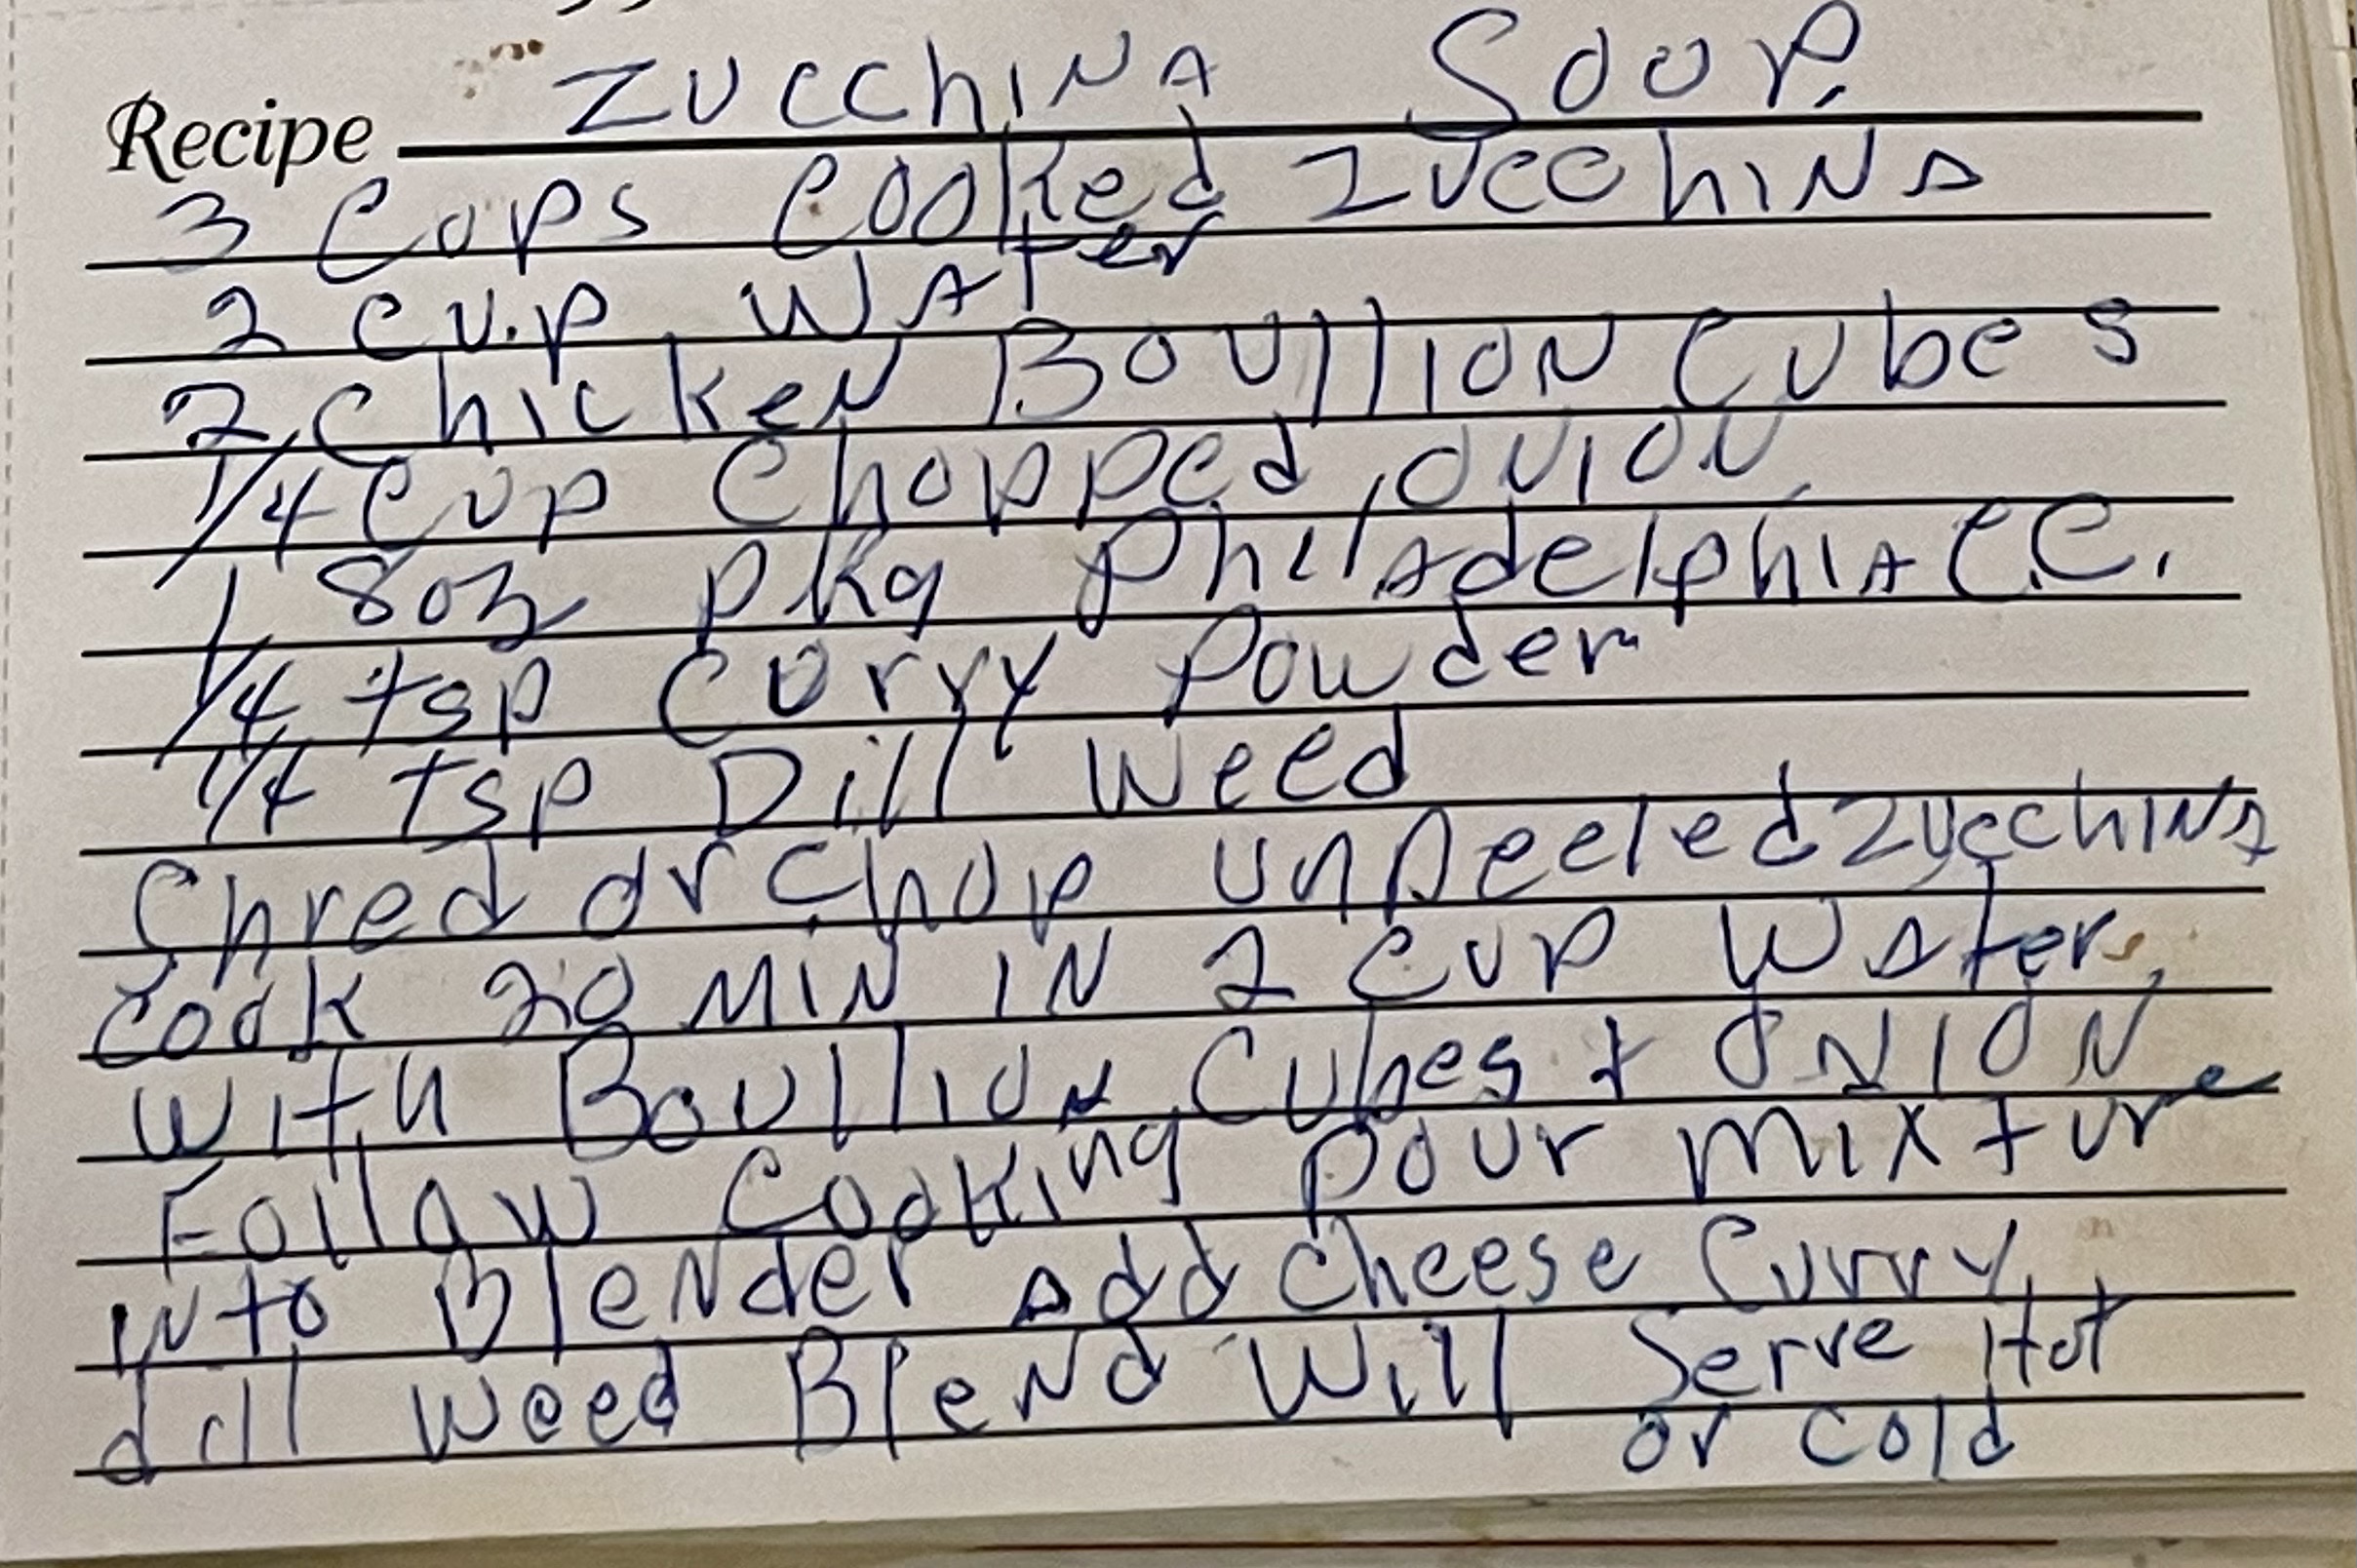 Recipe Zucchina Soup.
3 Cups Cooked Zucchina
2 Cup Water
2 Chicken Boullion Cubes
1/4 Cup Chopped onion
1 8oz pkg Philadelphia C.C.
1/4 tsp Curry Powder
1/4 tsp Dill Weed
Chred or Chop unpeeled Zucchina
Cook 20 Min IN 2 Cup Water,
With Boullion Cubes + ONION
Follow Cooking Pour Mixture
INto Blender Add Cheese Curry
dill weed Blend Will Serve Hot
or Cold